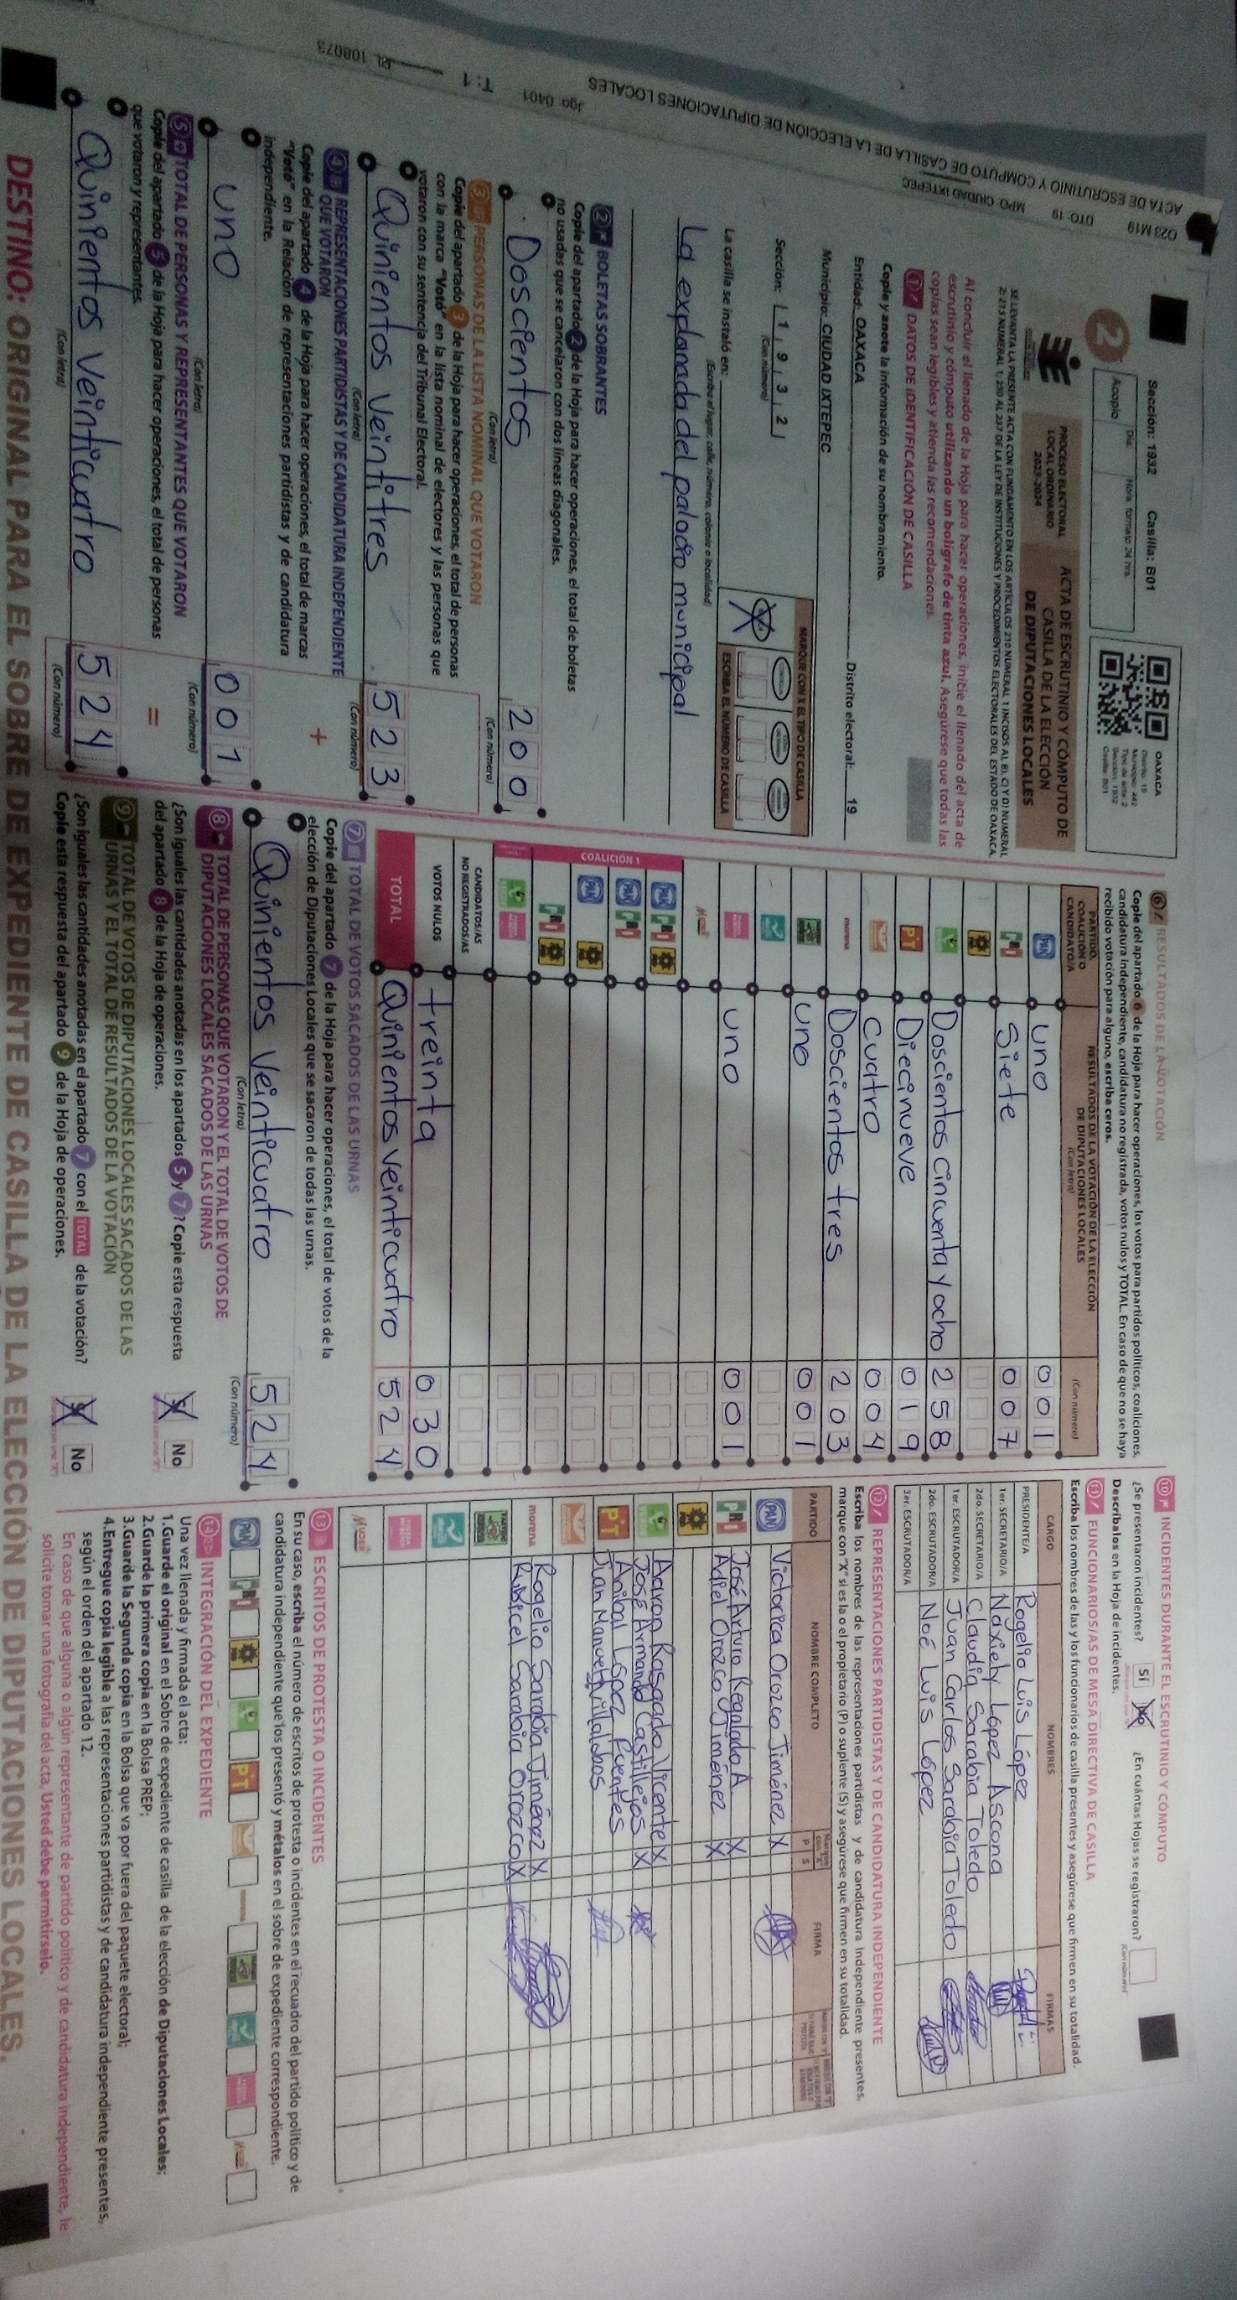 ACTA DE ESCRUTINIO Y CÓMPUTO DE CASILLA DE LA ELECCIÓN DE DIPUTACIONES LOCALES
023 M19 DTO: 19 MPO: CIUDAD IXTEPEC
Jgo: 0401 T: 1
Sección: 1932 Casilla: B01
2
Acopio
Día
Hora formato 24 hrs.
OAXACA
PROCESO ELECTORAL LOCAL ORDINARIO 2023-2024
ACTA DE ESCRUTINIO Y CÓMPUTO DE CASILLA DE LA ELECCIÓN DE DIPUTACIONES LOCALES
Al concluir el llenado de la Hoja para hacer operaciones, inicie el llenado del acta de
escrutinio y cómputo utilizando un bolígrafo de tinta azul. Asegúrese que todas las
copias sean legibles y atienda las recomendaciones.
1 DATOS DE IDENTIFICACIÓN DE CASILLA
Copie y anote la información de su nombramiento.
Entidad: OAXACA Distrito electoral: 19
Municipio: CIUDAD IXTEPEC
Sección: 1 9 3 2
(Con número)
MARQUE CON X EL TIPO DE CASILLA
ESCRIBA EL NÚMERO DE CASILLA
X
La casilla se instaló en:
(Escriba el lugar, calle, número, colonia o localidad)
La explanada del palacio municipal
2 BOLETAS SOBRANTES
Copie del apartado 2 de la Hoja para hacer operaciones, el total de boletas
no usadas que se cancelaron con dos líneas diagonales.
Doscientos 200
(Con letra) (Con número)
3 PERSONAS DE LA LISTA NOMINAL QUE VOTARON
Copie del apartado 3 de la Hoja para hacer operaciones, el total de personas
con la marca "Votó" en la lista nominal de electores y las personas que
votaron con su sentencia del Tribunal Electoral.
Quinientos veintitres 523
(Con letra) (Con número)
4 REPRESENTACIONES PARTIDISTAS Y DE CANDIDATURA INDEPENDIENTE
QUE VOTARON
Copie del apartado 4 de la Hoja para hacer operaciones, el total de marcas
"Votó" en la Relación de representaciones partidistas y de candidatura
independiente.
+
uno 001
(Con letra) (Con número)
5 TOTAL DE PERSONAS Y REPRESENTANTES QUE VOTARON
Copie del apartado 5 de la Hoja para hacer operaciones, el total de personas
que votaron y representantes.
=
Quinientos veinticuatro 524
(Con letra) (Con número)
6 RESULTADOS DE LA VOTACIÓN
Copie del apartado 6 de la Hoja para hacer operaciones, los votos para partidos políticos, coaliciones,
candidatura independiente, candidatura no registrada, votos nulos y TOTAL. En caso de que no se haya
recibido votación para alguno, escriba ceros.
PARTIDO, COALICIÓN O CANDIDATO/A
RESULTADOS DE LA VOTACIÓN DE LA ELECCIÓN DE DIPUTACIONES LOCALES
(Con letra) (Con número)
PAN uno 001
PRI Siete 007
Doscientos cincuenta y ocho 258
PT Diecinueve 019
Cuatro 004
morena Doscientos tres 203
uno 001
uno 001
COALICIÓN 1
CANDIDATOS/AS NO REGISTRADOS/AS
VOTOS NULOS treinta 030
TOTAL Quinientos veinticuatro 524
7 TOTAL DE VOTOS SACADOS DE LAS URNAS
Copie del apartado 7 de la Hoja para hacer operaciones, el total de votos de la
elección de Diputaciones Locales que se sacaron de todas las urnas.
Quinientos veinticuatro 524
(Con letra) (Con número)
8 TOTAL DE PERSONAS QUE VOTARON Y EL TOTAL DE VOTOS DE
DIPUTACIONES LOCALES SACADOS DE LAS URNAS
¿Son iguales las cantidades anotadas en los apartados 5 y 7? Copie esta respuesta
del apartado 8 de la Hoja de operaciones.
Sí No
9 TOTAL DE VOTOS DE DIPUTACIONES LOCALES SACADOS DE LAS
URNAS Y EL TOTAL DE RESULTADOS DE LA VOTACIÓN
¿Son iguales las cantidades anotadas en el apartado 7 con el TOTAL de la votación?
Copie esta respuesta del apartado 9 de la Hoja de operaciones.
Sí No
10 INCIDENTES DURANTE EL ESCRUTINIO Y CÓMPUTO
¿Se presentaron incidentes? Sí No ¿En cuántas Hojas se registraron?
(Con número)
Descríbalos en la Hoja de incidentes.
11 FUNCIONARIOS/AS DE MESA DIRECTIVA DE CASILLA
Escriba los nombres de las y los funcionarios de casilla presentes y asegúrese que firmen en su totalidad.
CARGO NOMBRES FIRMAS
PRESIDENTE/A Rogelio Luis López
1er. SECRETARIO/A Naxiely López Ascona
2do. SECRETARIO/A Claudia Sarabia Toledo
1er. ESCRUTADOR/A Juan Carlos Sarabia Toledo
2do. ESCRUTADOR/A Noé Luis López
3er. ESCRUTADOR/A
12 REPRESENTACIONES PARTIDISTAS Y DE CANDIDATURA INDEPENDIENTE
Escriba los nombres de las representaciones partidistas y de candidatura independiente presentes,
marque con "X" si es la o el propietario (P) o suplente (S) y asegúrese que firmen en su totalidad.
PARTIDO NOMBRE COMPLETO P S FIRMA
PAN Victorica Orozco Jiménez X
PRI José Arturo Regalado A. X
Adiel Orozco Jiménez X
Aaron Rasgado Vicente X
José Armando Castillejos X
PT Anibal López Fuentes
Juan Manuel Villalobos
morena Rogelio Sarabia Jiménez X
Rubicel Sarabia Orozco X
13 ESCRITOS DE PROTESTA O INCIDENTES
En su caso, escriba el número de escritos de protesta o incidentes en el recuadro del partido político y de
candidatura independiente que los presentó y métalos en el sobre de expediente correspondiente.
PAN PRI PT
14 INTEGRACIÓN DEL EXPEDIENTE
Una vez llenada y firmada el acta:
1.Guarde el original en el Sobre de expediente de casilla de la elección de Diputaciones Locales;
2.Guarde la primera copia en la Bolsa PREP;
3.Guarde la Segunda copia en la Bolsa que va por fuera del paquete electoral;
4.Entregue copia legible a las representaciones partidistas y de candidatura independiente presentes,
según el orden del apartado 12.
En caso de que alguna o algún representante de partido político y de candidatura independiente, le
solicite tomar una fotografía del acta. Usted debe permitírselo.
DESTINO: ORIGINAL PARA EL SOBRE DE EXPEDIENTE DE CASILLA DE LA ELECCIÓN DE DIPUTACIONES LOCALES.